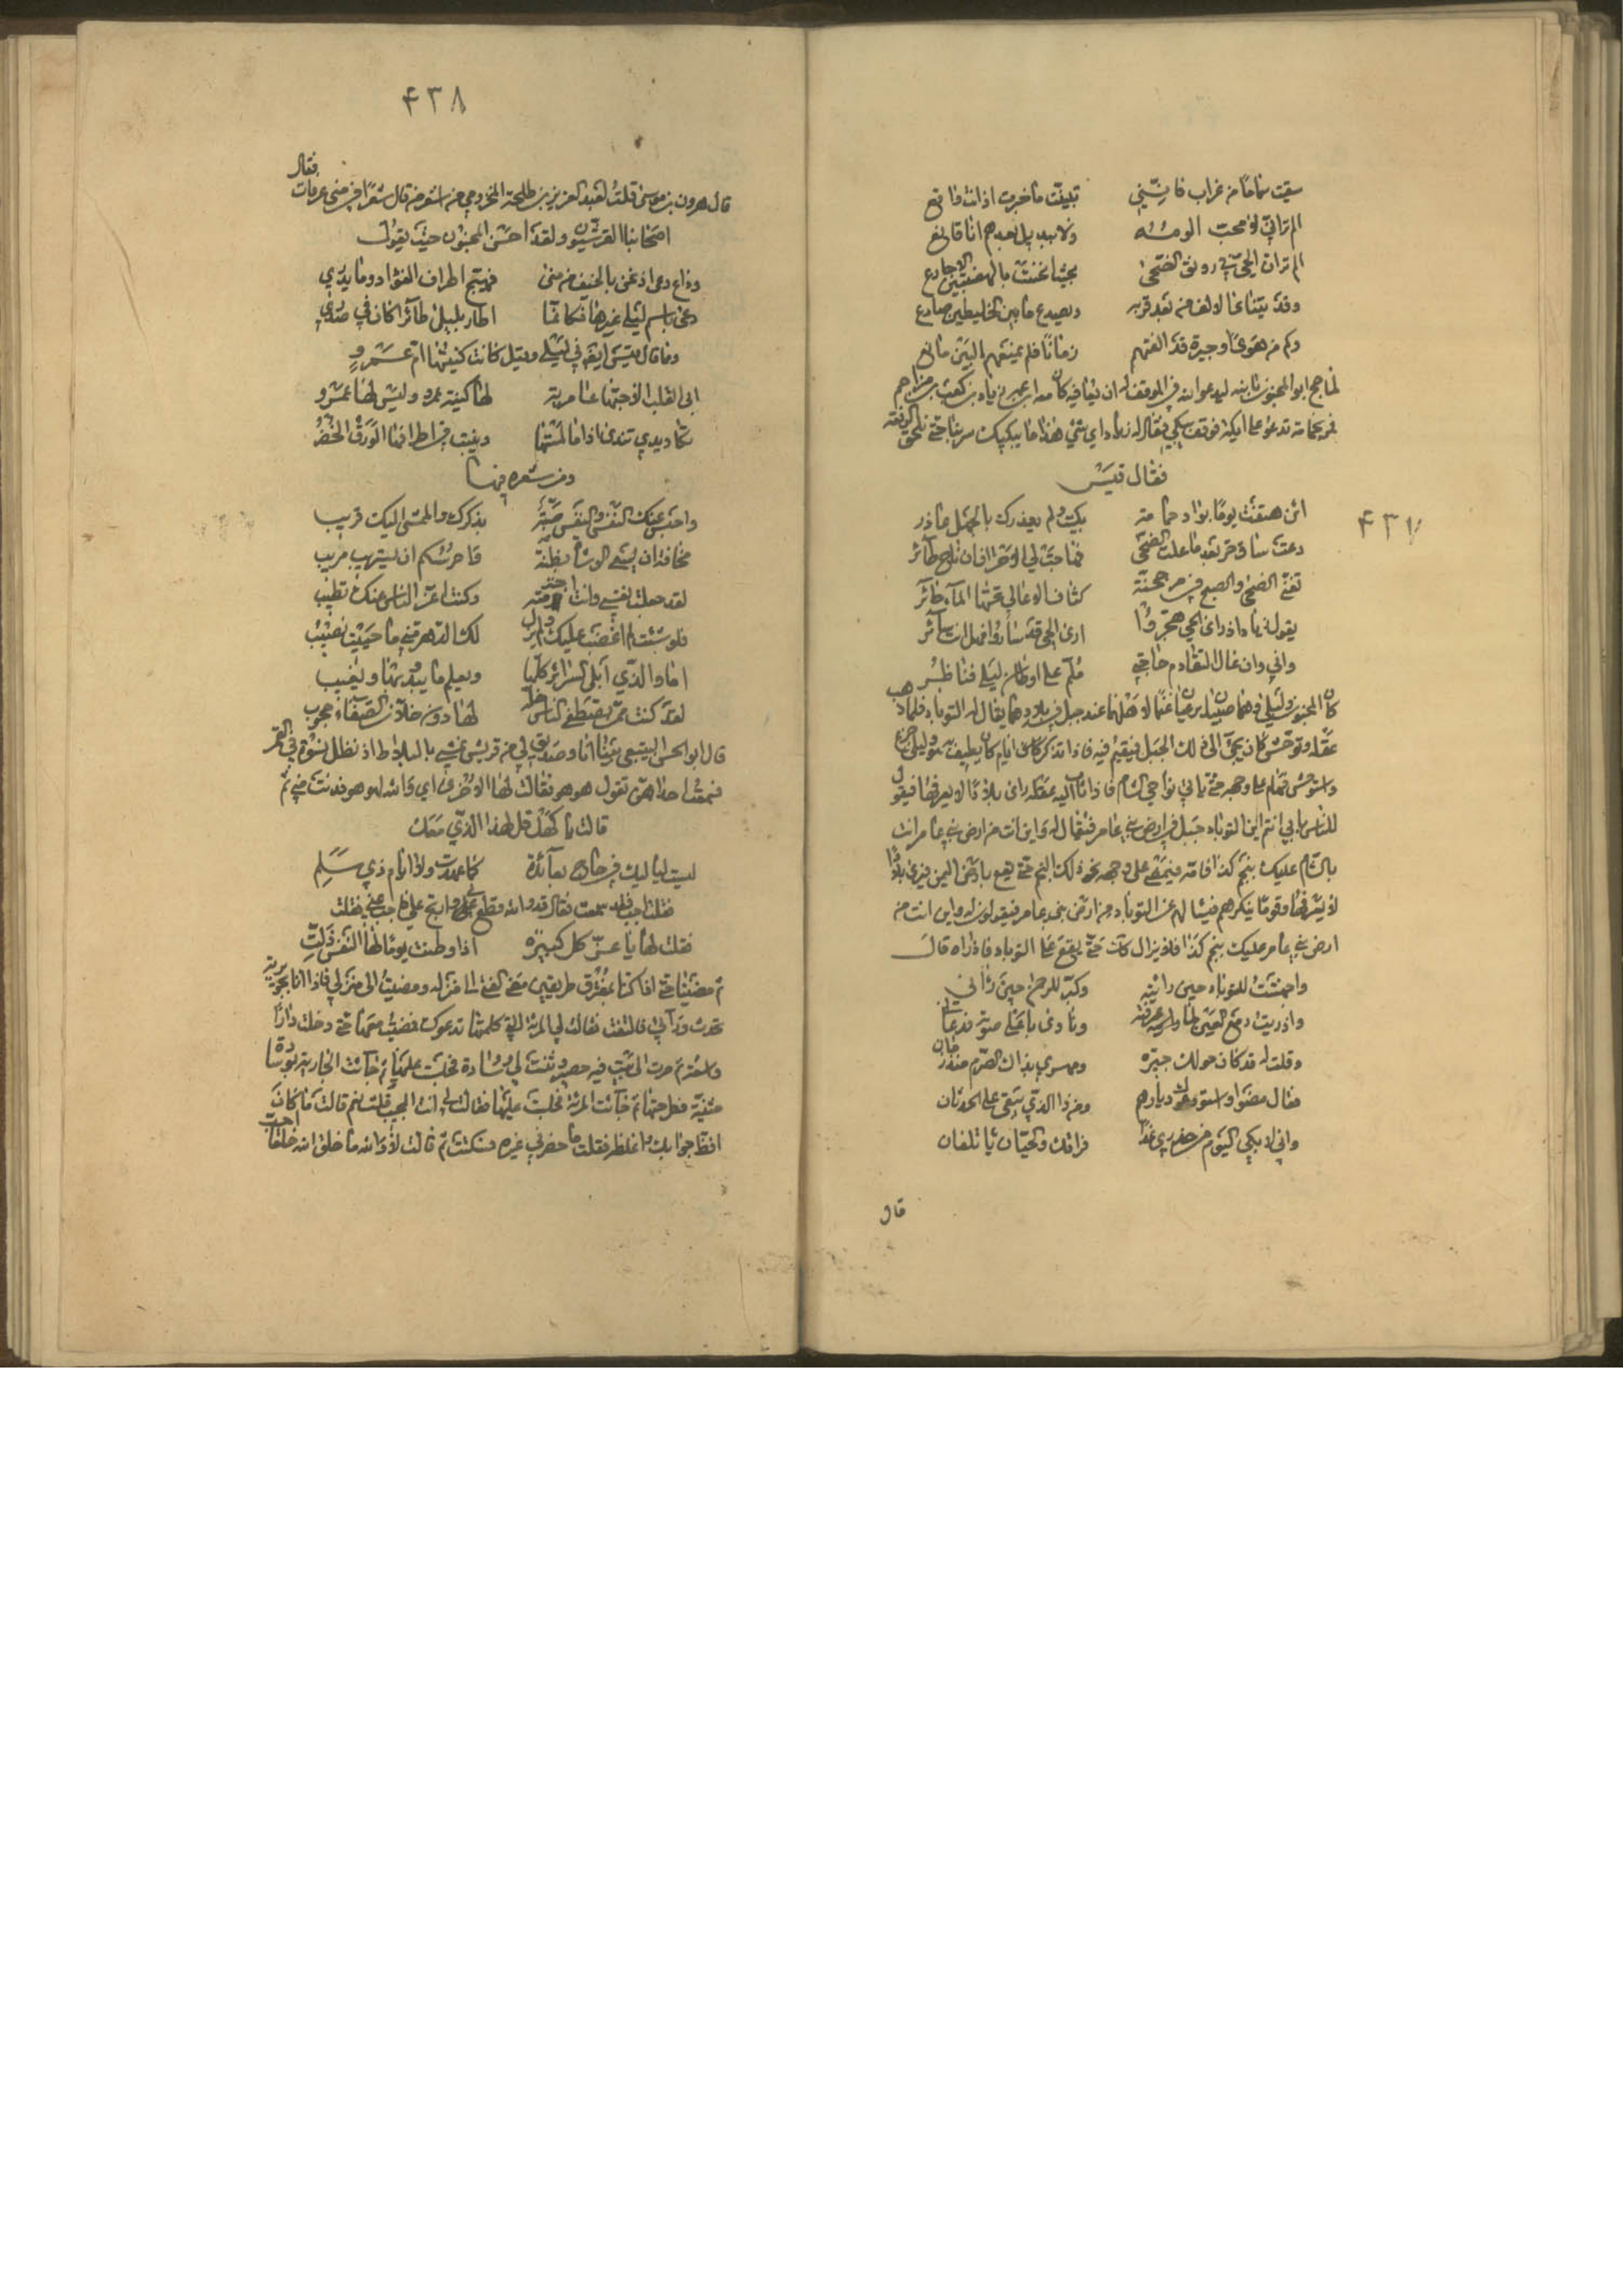 سقيت سماما من غراب فانني تبينت ما خبرت اذ انت واقع
الم تر اني لا محب الومه ولا ببديل بعدهم انا قانع
الم تر ان الحي في رونق الضحى بحيث انحنت بالهضبتين الاجارع
وقد يتناءى الالف من بعد قربه ويصدع ما بين الخليطين صادع
وكم من هوى او جيرة قد الفتهم زمانا فلم يمنعهم البين مانع
لما حج ابو المجنون بابنه ليدعو الله في الموقف له ان يعافيه كان معه ابن عمه زياد بن كعب بن مزاحم
فمر بحمامة تدعو على ايكة فوقف يبكي فقال له زياد اي شئ هذا ما يبكيك سر بنا حتى نلحق الرفقة
فقال قيس
ائن هتفت يوما بواد حمامة بكيت ولم يعذرك بالجهل عاذر
دعت ساق حر بعد ما علت الضحى فهاج لي الاحزان ان ناح طائر
تغني الضحى والصبح في مرجحنة كثاف الاعالي تحتها الماء حائر
يقول زياد اذ راى الحي هجروا ارى الحي قد ساروا فهل انت سائر
واني وان غال التقادم حاجتي ملم على اوطان ليلى فناظر
كان المجنون وليلى وهما صبيان يرعيان غنما لاهلهما عند جبل في بلادهما يقال له التوباد فلما ذهب
عقله وتوحش كان يجئ الى ذلك الجبل فيقيم فيه فاذا تذكر ايام كان يطيف هو وليلى به جزع
واستوحش فهام على وجهه حتى ياتي نواحي الشام فاذا ثاب اليه عقله راى بلادا لا يعرفها فيقول
للناس بابي انتم اين التوباد جبل في ارض بني عامر فيقال له واين انت من ارض بني عامر انت
بالشام عليك بنجم كذا فامه فيمضي على وجهه نحو ذلك النجم حتى يقع بارض اليمن فيرى بلادا
لا يعرفها وقوما ينكرهم فيسالهم عن التوباد من ارض بني عامر فيقولون له واين انت من
ارض بني عامر عليك بنجم كذا فلا يزال كذلك حتى يقع على التوباد فاذا راه قال
واجهشت للتوباد حين رايته وكبر للرحمن حين رآني
واذريت دمع العين لما عرفته ونادى باعلى صوته فدعاني
وقلت له قد كان حولك جيرة وعهدي بذاك الصرم منذ زمان
فقال مضوا واستودعوني ديارهم ومن ذا الذي يبقى على الحدثان
واني لابكي اليوم من حذري غدا فراقك والحيان ياتلفان
قال
۴۳۷
۴۳۸
قال هرون بن موسى قلت لعبد العزيز بن طلحة المخزومي من اشعر من قال شعرا في منى وعرفات فقال
اصحابنا القرشيون ولقد احسن المجنون حيث يقول
وداع دعى اذ نحن بالخيف من منى فهيج اطراف الفؤاد وما يدري
دعى باسم ليلى غيرها فكانما اطار بليلى طائرا كان في صدري
ومما قال قيس ايضا في ليلى وقيل كانت كنيتها ام عمرو
ابى القلب الا حبها عامرية لها كنية عمرو وليس لها عمرو
تكاد يدي تندى اذا ما لمستها وينبت في اطرافها الورق الخضر
ومن شعره فيها
واحبس عنك النفس والنفس صبة بذكرك والممشى اليك قريب
مخافة ان يسعى الوشاة بظنة فاحرسكم ان يستريب مريب
لقد جعلت نفسي وانت وكنت اعز الناس عنك تطيب
فلو شئت لم اغضب عليك ولم يزل لك الدهر مني ما حييت نصيب
اما والذي ابلى السرائر كلها ويعلم ما يبدى بها ويغيب
لقد كنت ممن يصطفي الناس خلة لها دون خلان الصفاء حجوب
قال ابو الحسن بينا انا وصديق لي من قريش نمشي بالبلاط اذ بظل نسوة في القمر
فسمعت احداهن تقول هو هو فقالت لها الاخرى اي والله لهو هو فدنت مني ثم
قالت يا كهل قل لهذا الذي معك
ليست لياليك في خاخ بعائدة كما عهدت ولا ايام ذي سلم
فقلت اجب فقد سمعت فقال قد والله قطع بي وارتج علي فاجب عني فقلت
فقلت لها يا عز كل كبيرة اذا وطنت يوما لها النفس ذلت
ثم مضينا حتى اذا كنا بمفترق طريقين مضى الفتى الى منزله ومضيت الى منزلي فاذا انا بجويرية
تجذب ردائي فالتفت فقالت لي المراة التي كلمتها تدعوك فمضيت معها حتى دخلت دارا
واسعة ثم صرت الى بيت فيه حصير وثنت لي وسادة فجلست عليها ثم جائت الجارية بوسادة
مثنية فطرحتها ثم جائت المراة فجلست عليها فقالت لي انت المجيب قلت نعم قالت ما كان
افظ جوابك واغلظه فقلت ما حضرني غيره فسكتت ثم قالت لا والله ما خلق الله خلقا احب